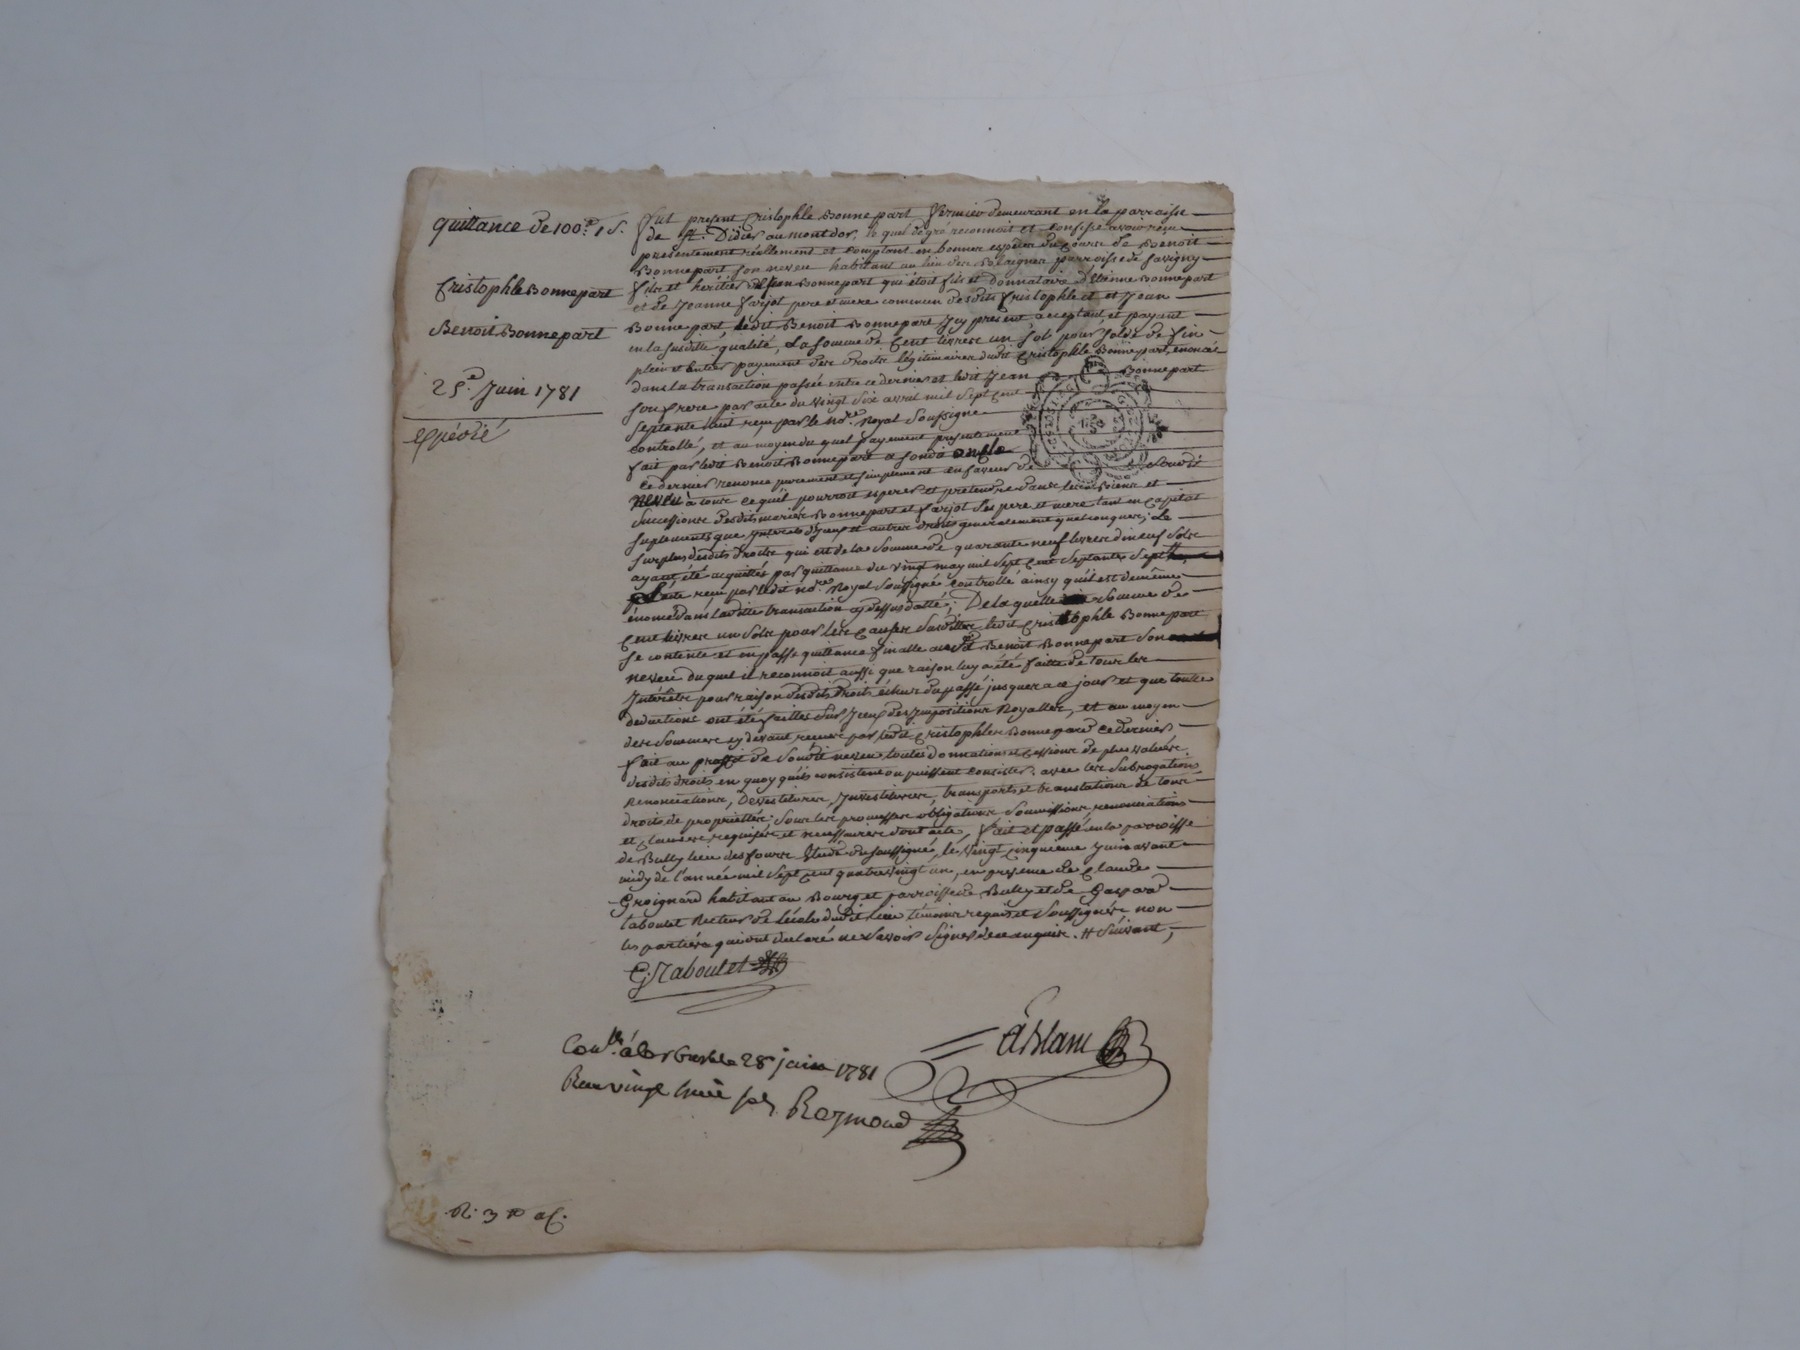 quittance de 100# 1 s.
Cristophle Bonnepart
Benoit Bonnepart
25e Juin 1781
Expédié
fut present Cristophle Bonnepart fermier demeurant en la parroisse
de st. Didier au montdor, le quel de gré reconnoit et confesse avoir recu
presentement réellement et comptant en bonnes espèces du cours de Benoit
Bonnepart son neveu habitant au lieu des parroisse de Savigny
fils et heritier de Jean Bonnepart qui étoit fils et donnataire d'Etienne Bonnepart
et de Jeanne farjot pere et mere commun desdits Cristophle et et Jean
Bonnepart, ledit Benoit Bonnepart Icy present, acceptant et payant
en la susditte qualité, La somme de Cent livres un sol pour solde de fin
plein et entier payement des droits légitimaires dudit Cristophle Bonnepart, enoncés
dans la transaction passée entre ce dernier et ledit Jean Bonnepart
son frere par acte du vingt six avril mil sept cent
septante huit reçu par le nore. Royal soussigné
controllé, et au moyen du quel payement presentement
fait par ledit Benoit Bonnepart a sondit oncle
ce dernier renonce purement et simplement en faveur de sondit
neveu à tout ce qu'il pourroit esperer et pretendre dans les biens et
successions desdits mariés Bonnepart et farjot ses pere et mere tant en Capital
suplements que interets d'Iceux et autres droits generalement quelconques; Le
surplus desdits droits qui est de la somme de quarante neuf livres dineuf sols
ayant été acquittés par quittance du vingt may mil sept cent septante sept
reçu par ledit nore. Royal soussigné controllé ainsy qu'il est de même
énoncé dans laditte transaction cy dessus datté; De la quelle somme de
Cent livres un sols pour les causes susdittes ledit Cristophle Bonnepart
se contente et en passe quittance finalle audit Benoit Bonnepart son
neveu du quel il reconnoit aussi que raison luy a été faitte de tous les
Interêts pour raison desdits droits échus du passé jusques a ce jour et que toutte
deductions ont été faittes sur Iceux des Impositions Royalles, et au moyen
des sommes cy devant reçues par ledit Cristophle Bonnepart ce dernier
fait au proffit de sondit neveu toutes donnations et cessions de plus valeurs
desdits droits en quoy qu'ils consistent ou puissent consister. avec les subrogations
Renonciations, Devestitures, Investitures, transports et translations de tous
droits de propriettés; sous les promesses obligations soumissions renonciations
et clauses requises et necessaires dont acte, fait et passé en la parroisse
de Bully lieu des fours Etude du soussigné, le vingt cinquieme Juin avant
midy de l'année mil sept cent quatre vingt un, en presence de Claude
Groignard habitant au Bourg et parroisse de Bully et de Gaspard
taboulet Recteur de l'école dudit lieu témoins requis et soussignés non
les parties qui ont declaré ne savoir signer de ce enquis. # suivant;
G. Taboulet
Conllé. à larbresle 28 juin 1781
Reçu vingt huit sols Raymond